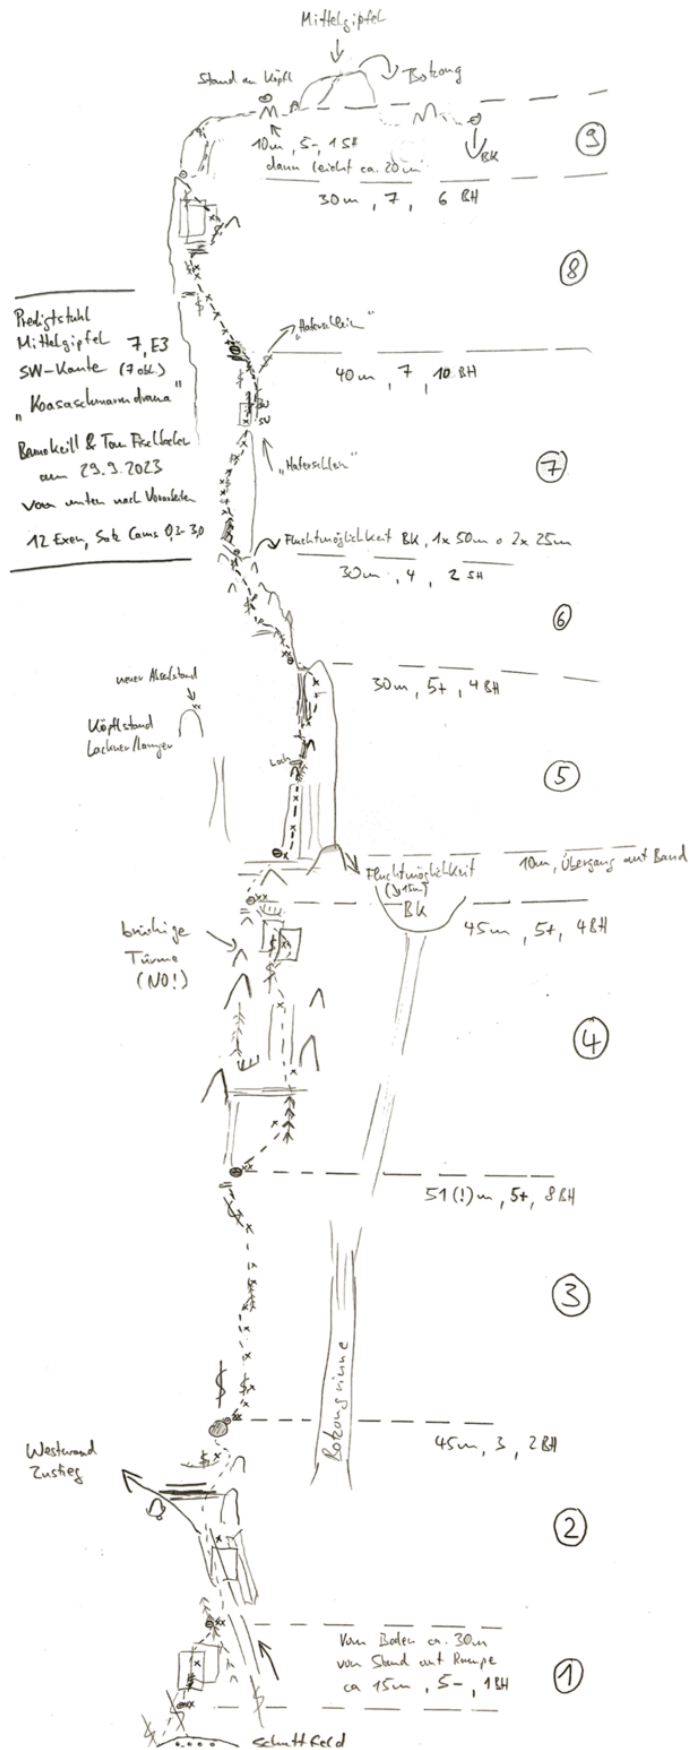 Mittelgipfel
Stand am Köpfl
Botzong
10m, 5-, 1 SH
dann leicht ca. 20m
BK
9
30m, 7, 6 BH
8
Predigtstuhl
Mittelgipfel 7, E3
SW-Kante (7 obl.)
"Koasaschmarrndrama"
am 29.9.2023
von unten nach Vorarbeiten
12 Exen, Satz Cams 0,3-3,0
"Haferschleim"
40m, 7, 10 BH
"Haferschleim"
7
Fluchtmöglichkeit BK, 1x 50m o 2x 25m
30m, 4, 2 SH
6
30m, 5+, 4 BH
neuer Abseilstand
Köpflstand
Lackner/Langer
Loch
5
10m, Übergang auf Band
Fluchtmöglichkeit
(↘15m)
BK
45m, 5+, 4 BH
brüchige
Türme
(NO!)
4
51(!)m, 5+, 8 BH
3
Botzongrinne
45m, 3, 2 BH
Westwand
Zustieg
2
Vom Boden ca. 30m
von Stand auf Rampe
ca 15m, 5-, 1 BH
1
Schuttfeld